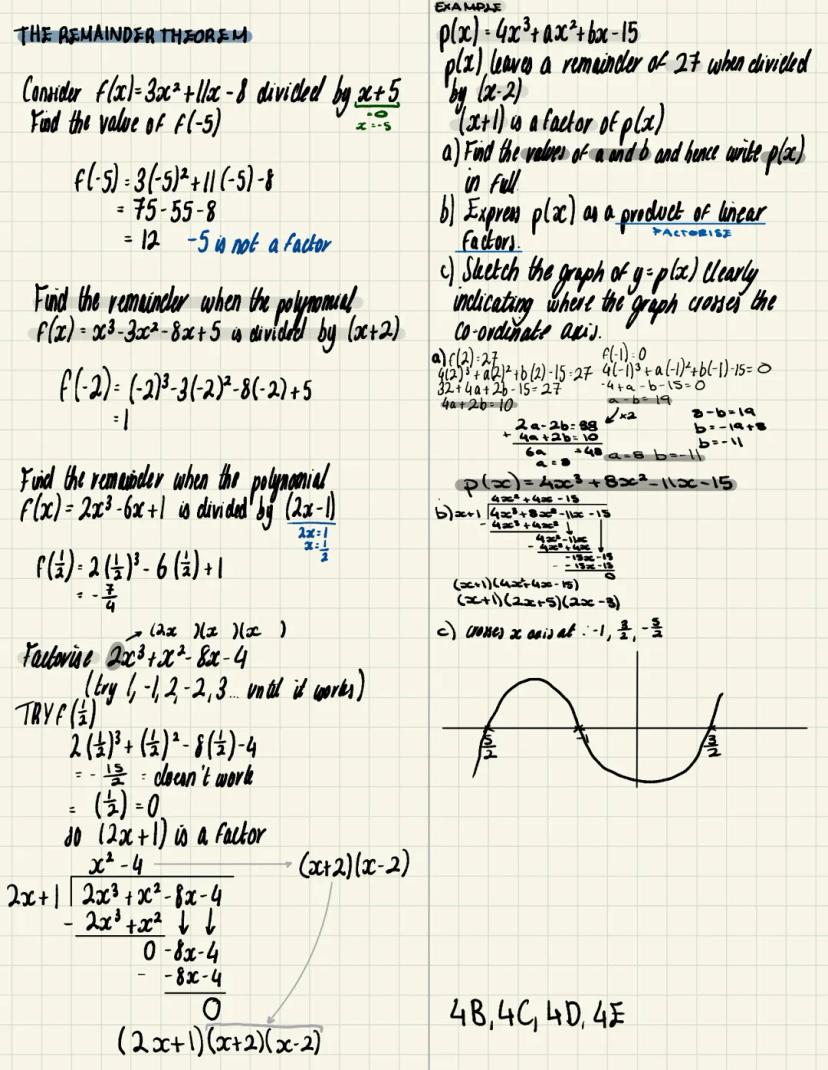 THE REMAINDER THEOREM
Consider f(x)=3x²+11x-8 divided by x+5
=0
x=-5
Find the value of f(-5)
f(-5)=3(-5)²+11(-5)-8
= 75-55-8
= 12 -5 is not a factor
Find the remainder when the polynomial
f(x)=x³-3x²-8x+5 is divided by (x+2)
f(-2)=(-2)³-3(-2)²-8(-2)+5
=1
Find the remainder when the polynomial
f(x)=2x³-6x+1 is divided by (2x-1)
2x=1
x=1/2
f(1/2)=2(1/2)³-6(1/2)+1
= -7/4
→ (2x )(x )(x )
Factorise 2x³+x²-8x-4
(try 1,-1,2,-2,3... until it works)
TRY f(1/2)
2(1/2)³+(1/2)²-8(1/2)-4
= -15/2 = doesn't work
= (1/2)=0
so (2x+1) is a factor
x²-4 → (x+2)(x-2)
2x+1 | 2x³+x²-8x-4
- 2x³+x² ↓ ↓
0 -8x-4
- -8x-4
0
(2x+1)(x+2)(x-2)
EXAMPLE
p(x)=4x³+ax²+bx-15
p(x) leaves a remainder of 27 when divided
by (x-2)
(x+1) is a factor of p(x)
a) Find the values of a and b and hence write p(x)
in full
b) Express p(x) as a product of linear
FACTORISE
factors.
c) Sketch the graph of y=p(x) clearly
indicating where the graph crosses the
co-ordinate axis.
a) f(2)=27
4(2)³+a(2)²+b(2)-15=27
32+4a+2b-15=27
4a+2b=10
f(-1)=0
4(-1)³+a(-1)²+b(-1)-15=0
-4+a-b-15=0
a-b=19
×2
2a-2b=38
+ 4a+2b=10
6a =48
a=8
8-b=19
b=-19+8
b=-11
a=8 b=-11
p(x)=4x³+8x²-11x-15
4x²+4x-15
b) x+1 | 4x³+8x²-11x-15
- 4x³+4x² ↓
4x²-11x
- 4x²+4x
-15x-15
- -15x-15
0
(x+1)(4x²+4x-15)
(x+1)(2x+5)(2x-3)
c) crosses x axis at :-1, 3/2, -5/2
5/2 -1 3/2
4B, 4C, 4D, 4E